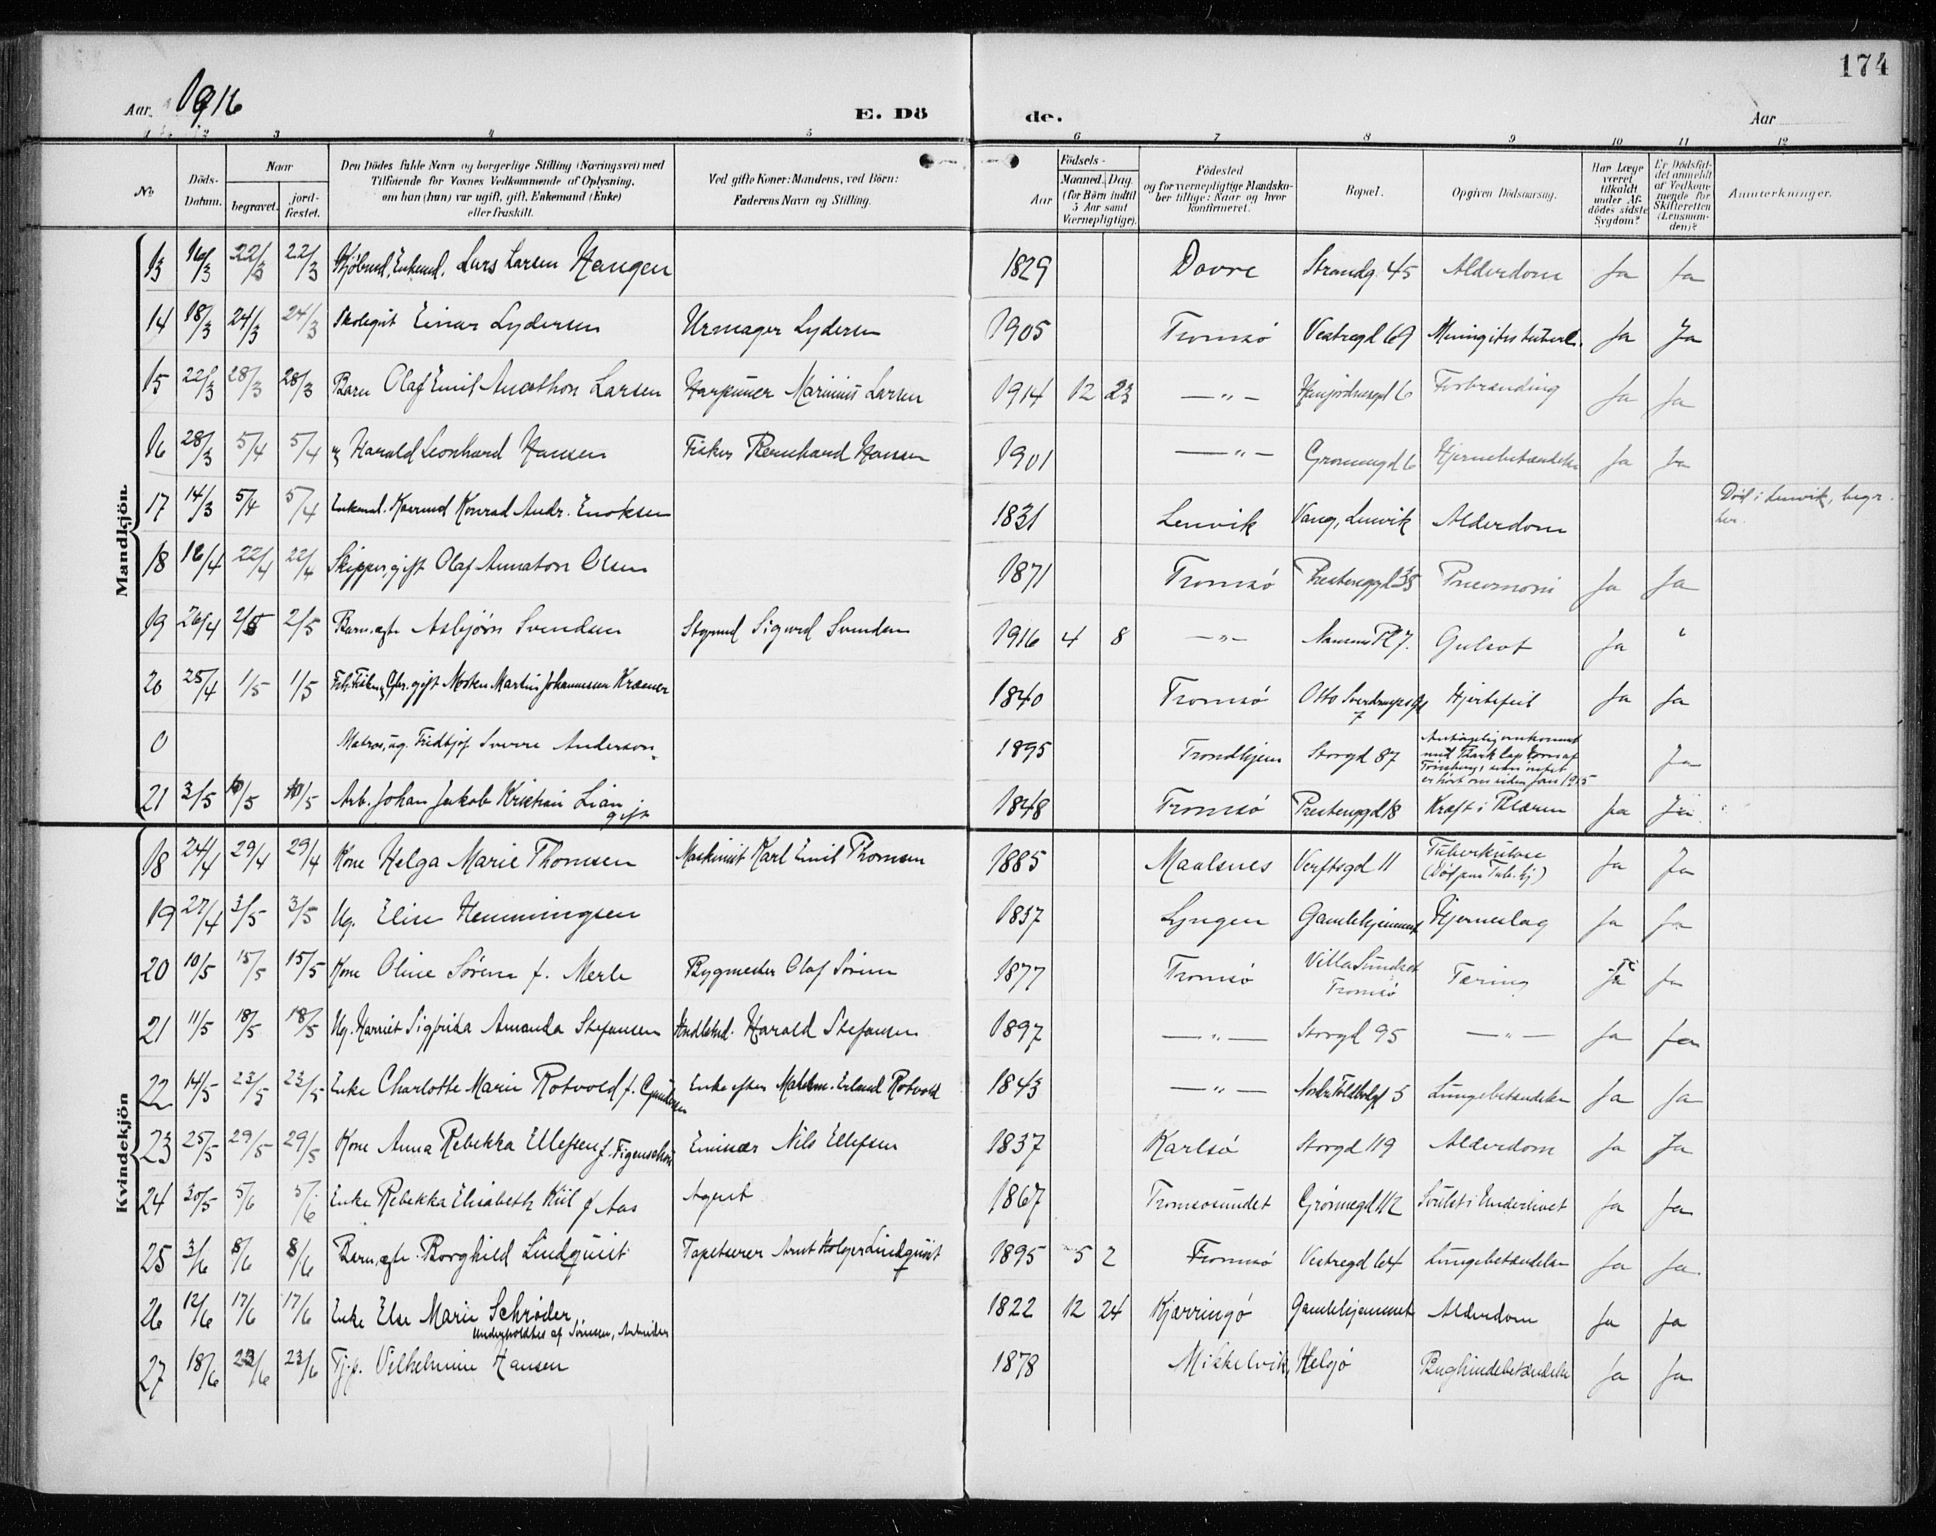 174
Aar 1916 E. Dö de. Aar
1 2 3 4 5 6 7 8 9 10 11 12
No Döds-Datum. Naar begravet. jord-fæstet. Den Dödes fulde Navn og borgerlige Stilling (Næringsvei) med Tilföiende for Voxnes Vedkommende af Oplysning, om han (hun) var ugift, gift, Enkemand (Enke) eller fraskilt. Ved gifte Koner: Mandens, ved Börn: Faderens Navn og Stilling. Födsels- Aar Maaned. Dag. (for Børn indtil 5 Aar samt Værnepligtige). Födested og for værnepligtige Mandskaber tillige: Naar og hvor konfirmeret. Bopæl. Opgiven Dödsaarsag. Har Læge været tilkaldt under Afdödes sidste Sygdom? Er Dödsfaldet anmeldt af Vedkommende for Skifteretten (Lensmanden)? Anmerkninger.
Mandkjön.
13 16/3 22/3 22/3 Enkemd. Lars Larsen Haugen 1829 Dovre Strandg. 45 Alderdom Ja Ja
14 18/3 24/3 24/3 Skolegut Einar Lydersen Urmager Lydersen 1905 Tromsö Vestregd 69 Meningitis tuberc. Ja Ja
15 22/3 28/3 28/3 Barn Olaf Emil Larsen Harpuner Marinius Larsen 1914 12 23 —"— 6 Forbrænding Ja Ja
16 28/3 5/4 5/4 Harald Leonhard Hansen Fisker Bernhard Hansen 1901 —"— Grønnegd 6 Hjernebetændelse Ja Ja
17 14/3 5/4 5/4 Enkemd. Konrad Andr. Enoksen 1831 Lenvik Vang, Lenvik Alderdom Död i Lenvik, begr. her.
18 16/4 22/4 22/4 Skipper, gift Olaf Annaton Olsen 1871 Tromsö 38 Pneumoni Ja Ja
19 26/4 2/5 2/5 Barn, ægte Asbjørn Svendsen Sigurd Svendsen 1916 4 8 —"— Nansens Pl 7. Gulsot Ja "
20 25/4 1/5 1/5 gift Morten Martin Johannessen Kræmer 1840 Tromsö Otto Sverdrupsgd 7 Hjertefeil Ja Ja
0 Matros, ug. Fridtjof Sverre Anderson. 1895 Trondhjem Storgd 87 Antagelig omkommet med er hørt om siden Jan 1915 Ja
21 3/5 10/5 10/5 Arb. Johan Jakob Kristian Lian gift 1848 Tromsö 18 Kræft i Blæren Ja Ja
Kvindekjön
18 24/4 29/4 29/4 Kone Helga Marie Thomsen Maskinist Karl Emil Thomsen 1885 Maalsnes Verftsgd 11 Tuberkulose Ja Ja
19 27/4 3/5 3/5 Ug. Elise Hemmingsen 1837 Lyngen Gamlehjemmet Hjerneslag Ja Ja
20 10/5 15/5 15/5 Kone Oline Sørem f. Merle Bygmester Olaf Sørem 1877 Tromsö Villa Tromsö Tæring Ja Ja
21 11/5 18/5 18/5 Ug. Harriet Sigfrida Amanda Stefansen Harald Stefansen 1897 —"— Storgd 95 —"— Ja Ja
22 14/5 23/5 23/5 Enke Charlotte Marie Rotvold f. Gundersen Enke efter Erland Rotvold 1843 —"— 5 Lungebetændelse Ja Ja
23 25/5 29/5 29/5 Kone Anna Rebekka Ellefsen f. Figenschou Nils Ellefsen 1837 Karlsö Storgd 119 Alderdom Ja Ja
24 30/5 5/6 5/6 Enke Rebekka Elisabeth Kiil f Aas Agent 1867 Tromsösundet Grönnegd 112 Svulst i Underlivet Ja Ja
25 3/6 8/6 8/6 Barn, ægte Borghild Lindquist Tapetserer Arnt Holger Lindquist 1895 5 2 Tromsö Vestregd 64 Lungebetændelse Ja Ja
26 12/6 17/6 17/6 Enke Else Marie Schrøder 1822 12 24 Kjærringö Gamlehjemmet Alderdom Ja Ja
underholdtes af Sønnen, Arbeider
27 18/6 23/6 23/6 Tj.p. Vilhelmine Hansen 1878 Mikkelvik, Helgö Bughindebetændelse Ja Ja